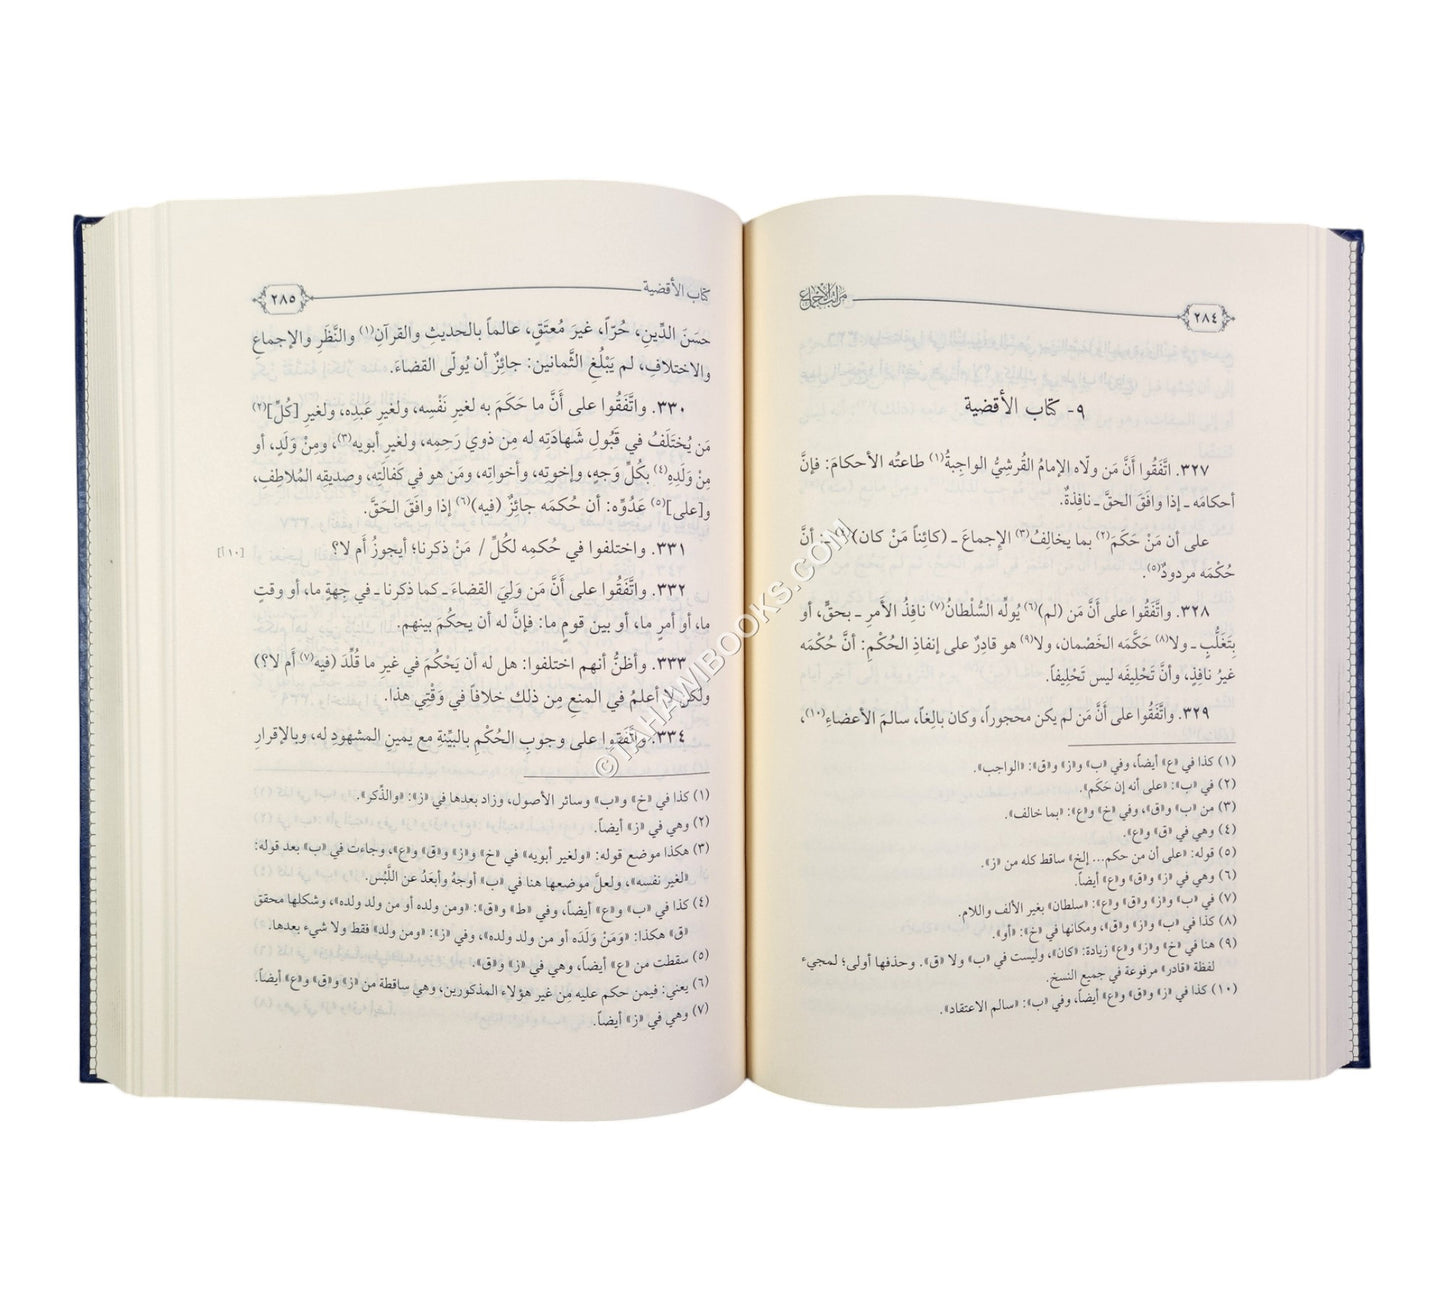 ٢٨٤
مراتب الإجماع
٩- كتاب الأقضية
٣٢٧. اتَّفَقُوا أَنَّ مَن ولاه الإمامُ القُرشِيُّ الواجِبةُ(١) طاعتُه الأحكامَ: فإنَّ
أحكامَه ـ إذا وافَقَ الحقَّ ـ نافِذةٌ.
على أن مَنْ حَكَمَ(٢) بما يخالِفُ(٣) الإجماعَ ـ (كائِناً مَنْ كان)(٤) ـ أنَّ
حُكْمَه مردودٌ(٥).
٣٢٨. واتَّفَقُوا على أَنَّ مَن (لم)(٦) يُولِّه السُّلْطانُ(٧) نافِذُ الأَمرِ ـ بحقٍّ، أو
بِتَغَلُّبٍ ـ ولا(٨) حَكَّمَه الخَصْمان، ولا(٩) هو قادِرٌ على إنفاذِ الحُكْمِ: أنَّ حُكْمَه
غيرُ نافِذٍ، وأنَّ تَحْلِيفَه ليس تَحْلِيفاً.
٣٢٩. واتَّفَقُوا على أَنَّ مَن لم يكن محجوراً، وكان بالِغاً، سالمَ الأعضاءِ(١٠)،
(١) كذا في «ع» أيضاً، وفي «ب» و«ز» و«ق»: «الواجب».
(٢) في «ب»: «على أنه إن حَكَم».
(٣) من «ب» و«ق»، وفي «خ» و«ع»: «بما خالف».
(٤) وهي في «ق» و«ع».
(٥) قوله: «على أن من حكم... إلخ» ساقط كله من «ز».
(٦) وهي في «ز» و«ق» و«ع» أيضاً.
(٧) في «ب» و«ز» و«ق» و«ع»: «سلطان» بغير الألف واللام.
(٨) كذا في «ب» و«ز» و«ق»، ومكانها في «خ»: «أو».
(٩) هنا في «خ» و«ز» و«ع» زيادة: «كان»، وليست في «ب» ولا «ق». وحذفها أولى؛ لمجيء
لفظة «قادر» مرفوعة في جميع النسخ.
(١٠) كذا في «ز» و«ق» و«ع» أيضاً، وفي «ب»: «سالم الاعتقاد».
كتاب الأقضية
٢٨٥
حسَنَ الدِّينِ، حُرّاً، غيرَ مُعتَقٍ، عالماً بالحديثِ والقرآنِ(١) والنَّظَرِ والإجماعِ
والاختلافِ، لم يَبْلُغِ الثَّمانين: جائِزٌ أن يُولّى القضاءَ.
٣٣٠. واتَّفَقُوا على أَنَّ ما حَكَمَ به لغيرِ نَفْسِه، ولغيرِ عَبدِه، ولغيرِ [كُلِّ](٢)
مَن يُختَلَفُ في قَبُولِ شَهادَتِه له مِن ذوي رَحِمِه، ولغيرِ أبويه(٣)، ومِنْ وَلَدٍ، أو
مِنْ وَلَدِه(٤) بكُلِّ وَجهٍ، وإخوتِه، وأخواتِه، ومَن هو في كَفالَتِه، وصديقِه المُلاطِفِ،
و[على](٥) عَدُوِّه: أن حُكمَه جائِزٌ (فيه)(٦) إذا وافَقَ الحَقَّ.
٣٣١. واختلفوا في حُكمِه لكُلِّ / مَنْ ذكرنا؛ أيجوزُ أم لا؟
[١٠أ]
٣٣٢. واتَّفَقُوا على أَنَّ مَن وَلِيَ القضاءَ ـ كما ذكرنا ـ في جِهةٍ ما، أو وقتٍ
ما، أو أمرٍ ما، أو بين قومٍ ما: فإنَّ له أن يحكُمَ بينهم.
٣٣٣. وأظنُّ أنهم اختلفوا: هل له أن يَحْكُمَ في غيرِ ما قُلِّدَ (فيه(٧) أَم لا؟)
ولكن لا أعلمُ في المنعِ مِن ذلك خلافاً في وَقْتِي هذا.
٣٣٤. واتَّفَقُوا على وجوبِ الحُكْمِ بالبيِّنةِ مع يمينِ المشهودِ له، وبالإقرارِ
(١) كذا في «خ» و«ب» وسائر الأصول، وزاد بعدها في «ز»: «والذِّكر».
(٢) وهي في «ز» أيضاً.
(٣) هكذا موضع قوله: «ولغير أبويه» في «خ» و«ز» و«ق» و«ع»، وجاءت في «ب» بعد قوله:
«لغير نفسه»، ولعلَّ موضعها هنا في «ب» أوجهُ وأبعَدُ عن اللَّبْس.
(٤) كذا في «ب» و«ع» أيضاً، وفي «ط» و«ق»: «ومن ولده أو من ولد ولده»، وشكلها محقق
«ق» هكذا: «وَمَنْ وَلَدَه أو من ولد ولده»، وفي «ز»: «ومن ولد» فقط ولا شيء بعدها.
(٥) سقطت من «ع» أيضاً، وهي في «ز» و«ق».
(٦) يعني: فيمن حكم عليه مِن غير هؤلاء المذكورين، وهي ساقطة من «ز» و«ق» و«ع» أيضاً.
(٧) وهي في «ز» أيضاً.
©TAHAWIBOOKS.COM